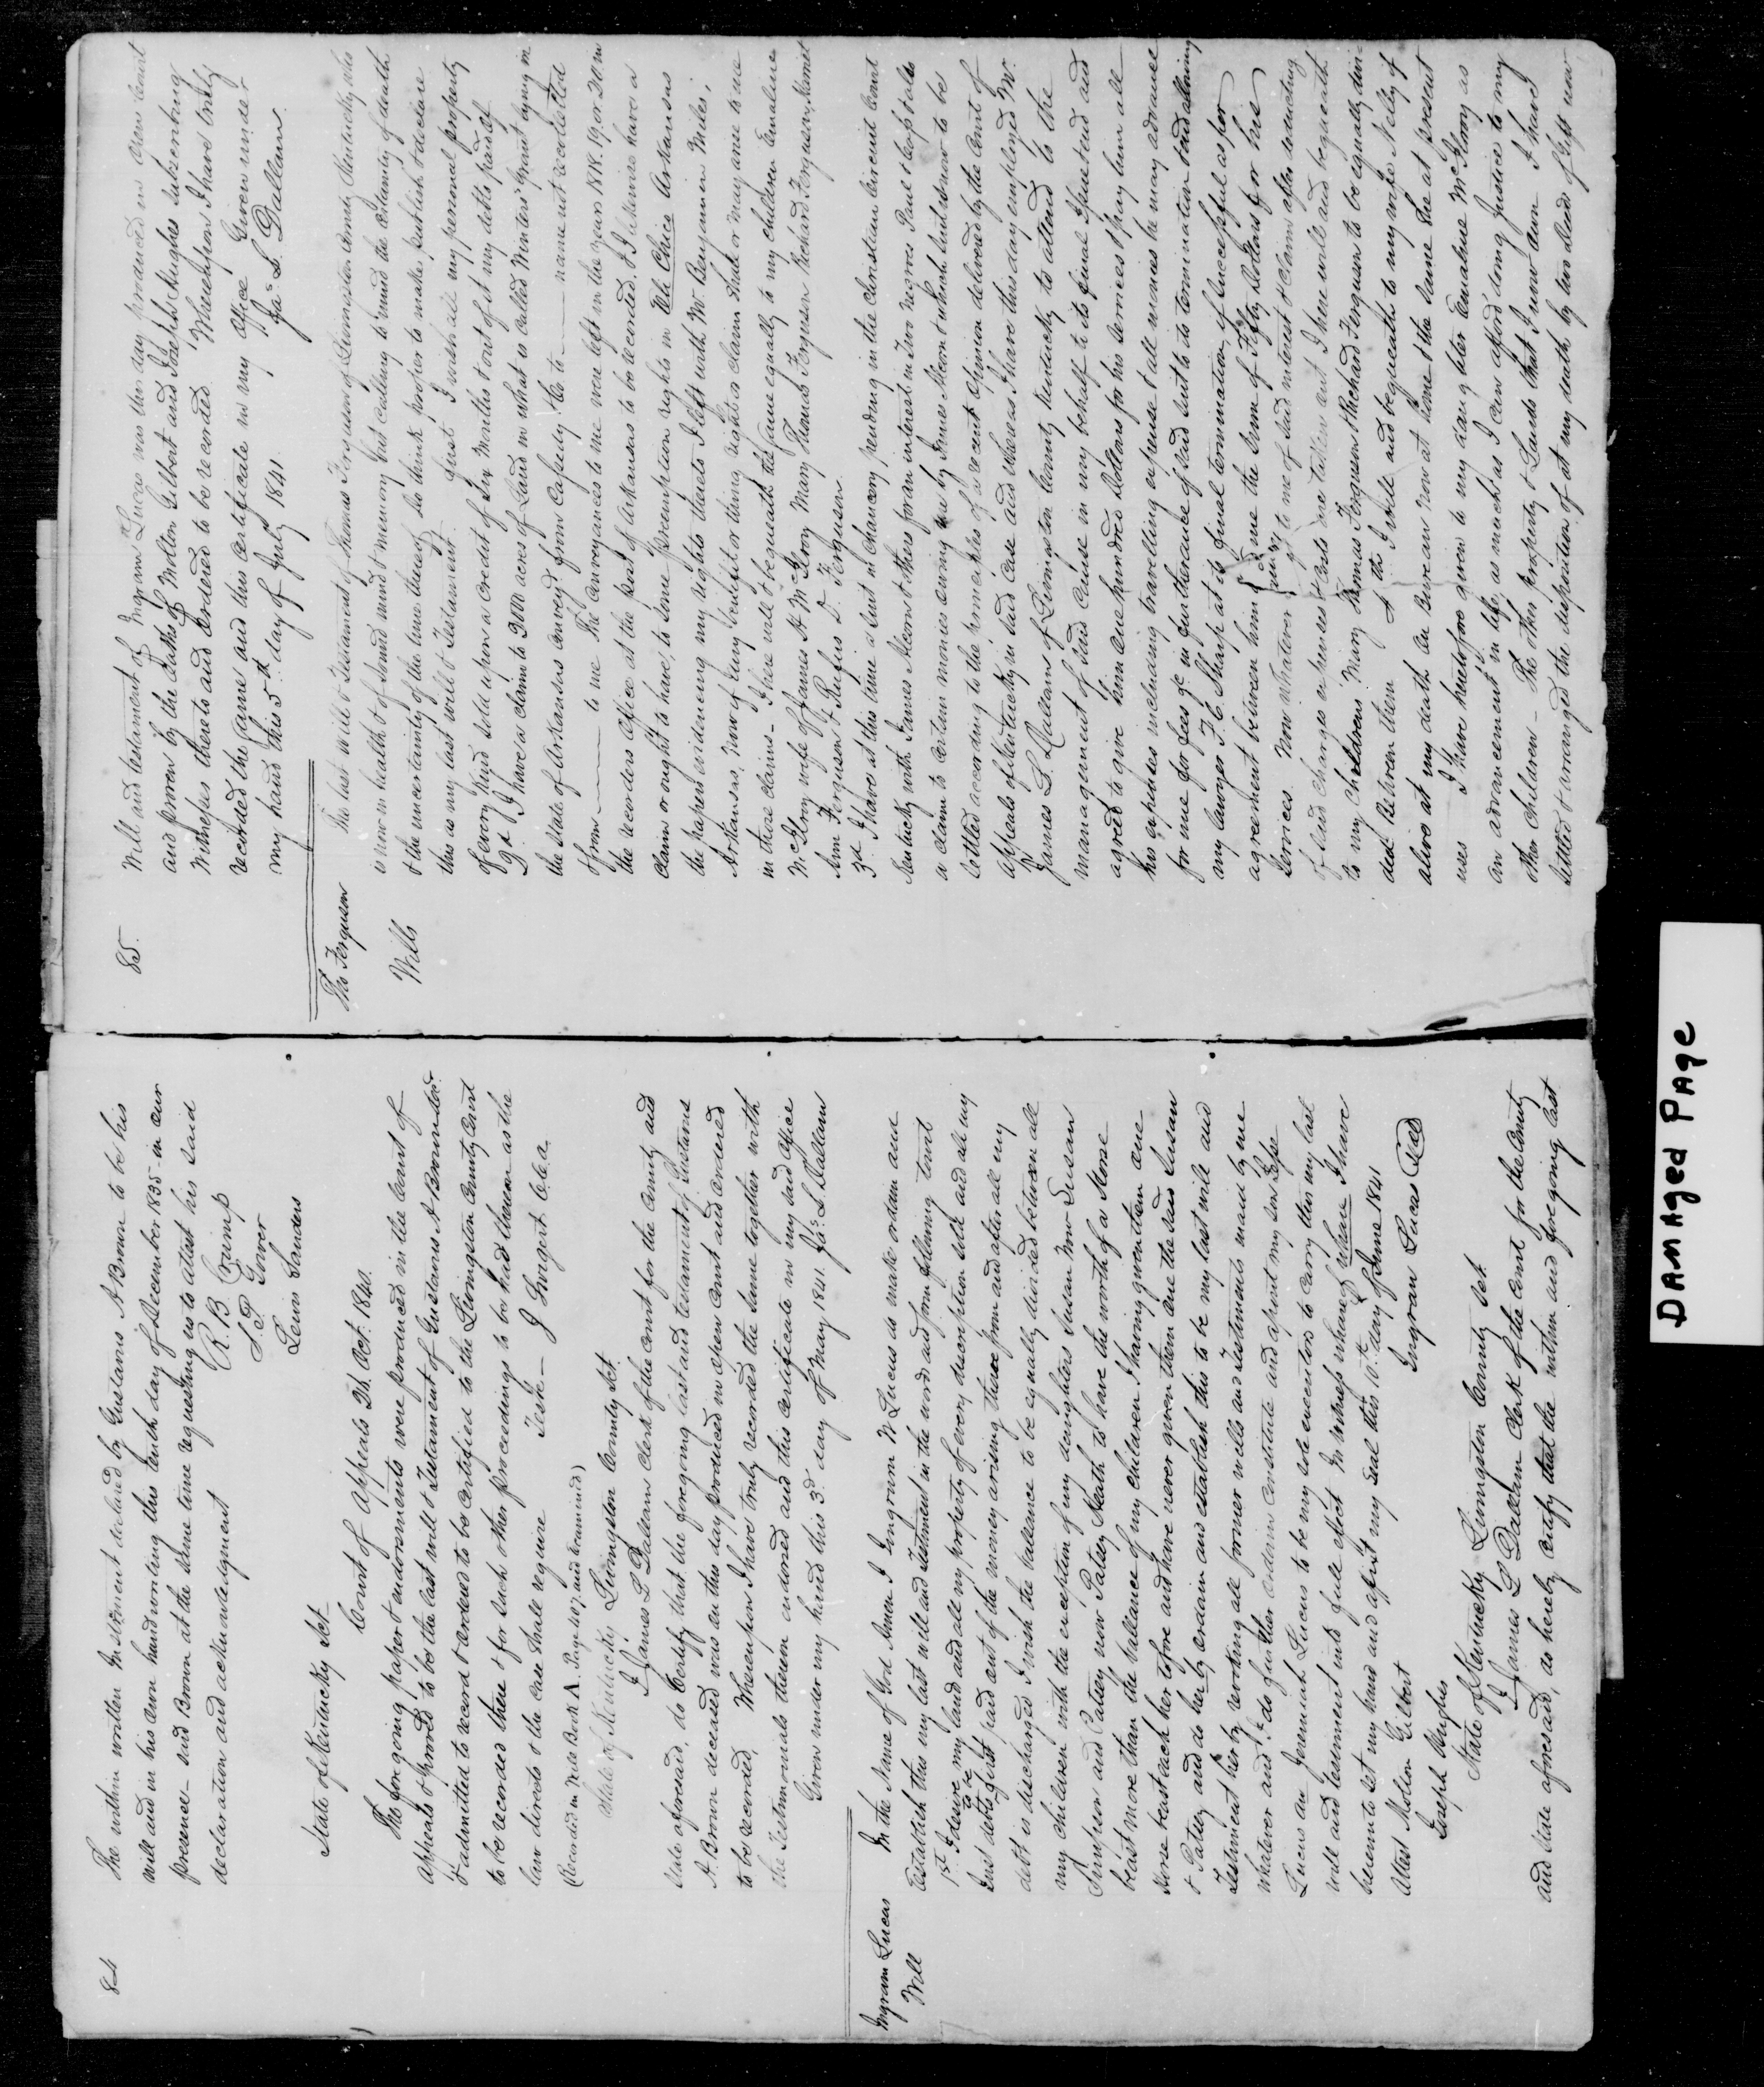 84
The within written Instrument declared by Gustavus A Brown to be his
will and in his own hand writing this tenth day of December 1835 - in our
presence - said Brown at the same time requesting us to attest his said
declaration and acknowledgment
R. B. Crump
S. P. Gover
Lewis Sanders
State of Kentucky Sct
Court of Appeals 26. Oct. 1840.
The foregoing paper & endorsements were produced in the Court of
Appeals & proved to be the last will & Testament of Gustavus A Brown decd.
& admitted to record & ordered to be certified to the Livingston County Court
to be recorded there & for such other proceedings to be had thereon as the
law directs & the case shall require Teste - J Swigert C.C.A.
(Recorded in Will Book A. Page 407. and examined)
State of Kentucky Livingston County Sct.
I James L Dallam Clerk of the court for the County and
State aforesaid, do Certify that the foregoing last and testament of Gustavus
A. Brown deceased was on this day produced in open Court and ordered
to be recorded. Whereupon I have truly recorded the same together with
the Testimonials thereon endorsed and this certificate in my said office
Given under my hand this 3d. day of May 1841. Jas. L Dallam
Ingram Lucas
Will
In the Name of God Amen I Ingrum W Lucus do make ordain and
Establish this my last will and Testment in the words and form following towit
1st. I desire my land and all my property of every discription sold and all my
Just debts to be first paid out of the money arising there from and after all my
debt is discharged I wish the ballence to be equally divided between all
my children with the exception of my daughters Susan Now Susan
Simpson and Patsey now Patsey Heath to have the worth of a Horse
beast more than the ballance of my children I having given them one
Horse beast each her tofore and have never given them one the said Susan
& Patsey and do her by ordain and establish this to be my last will and
Testment her by revoking all former wills and Testments maid by me
whatever and I do further ordain constitute and apoint my son Jesse
Lucus an Jeremiah Lucus to be my sole executors to carry this my last
will and testment into full efect In witness whareof I have
hereunto set my hand and afixt my seal this 10th. day of June 1841
Attest Molton Gilbert Ingram Lucas Seal
Joseph Hughes
State of Kentucky Livingston County Sct.
I James L Dallam Clerk of the Court for the County
and State aforesaid, do hereby Certify that the within and foregoing last
85.
Will and testament of Ingram Lucas was this day produced in open Court
and proven by the oaths of Molton Gilbert and Joseph Hughes subscribing
Witnesses thereto and ordered to be recorded Whereupon I have truly
recorded the same and this certificate in my office Given under
my hand this 5th. day of July 1841. Jas. L Dallam.
Tho Ferguson
Wills
The last will & Testament of Thomas Ferguson of Livingston County, Kentucky, who
is now in health & of sound mind & memory but calling to mind the certainty of death
& the uncertainty of the time thereof do think proper to make, publish & declare
this as my last will & Testament. first I wish all my personal property
of every kind sold upon a credit of Six Months & out of it my debts paid off
2d I have a claim to 2000 acres of Land in what is called Winters' Grant lying in
the State of Arkansas conveyed from Cassedy &c to — name not recollected
& from — to me The conveyances to me were left in the years 1818. 19 or 20 in
the recorders office at the post of Arkansas to be recorded. & I likewise have a
claim or ought to have, to some preemption rights in the Chico Arkansas
the papers evidencing my rights thereto I left with Mr Benjamin Miles,
Arkansas. Now if any benefit or thing right or claim shall or may acrue to me
in those claims - I here will & bequeath the same equally to my children Emaline
McElroy wife of James H McElroy Mary Thomas Ferguson Richard Ferguson, Harriet
Ann Ferguson & Rufus D. Ferguson
3d. I have at this time a suit in Chancery pending in the Christian Circuit Court
Kentucky with James Mcorn & others for an interest in two negroes Paul & Cleopt also
a claim to certain monies owing me by James Mcorn & which suit is now to be
settled according to the principles of a recent opinion delivered by the Court of
appeals of Kentucky in said case and whereas I have this day employed Mr.
James L. Dallam of Livingston County Kentucky to attend to the
management of said cause in my behalf to its final Issue and and
agreed to give him one hundred dollars for his services & pay him all
his expenses including travelling expense & all monies he may advance
for me for fees &c in furtherance of said suit to its termination & said
my lawyer F. C. Sharp at its final termination, if successful as per
agreement between him and me the sum of Fifty dollars for his
services. Now whatever may to me of said interest & claim after deducting
of said charges expenses & costs are taken out I here will and bequeath
to my children Mary Thomas Ferguson & Richard Ferguson to be equally divi-
ded between them 4th I will and bequeath to my wife Nelley if
alive at my death one Bureau now at home & the same she at present
uses I have heretofore given to my daughter Emaline McElroy as
an advancement in life, as much as I can afford doing Justice to my
other children - The other property & Lands that I now own I have
settled & arranged the disposition of at my death by two deeds of gift now
Damaged Page